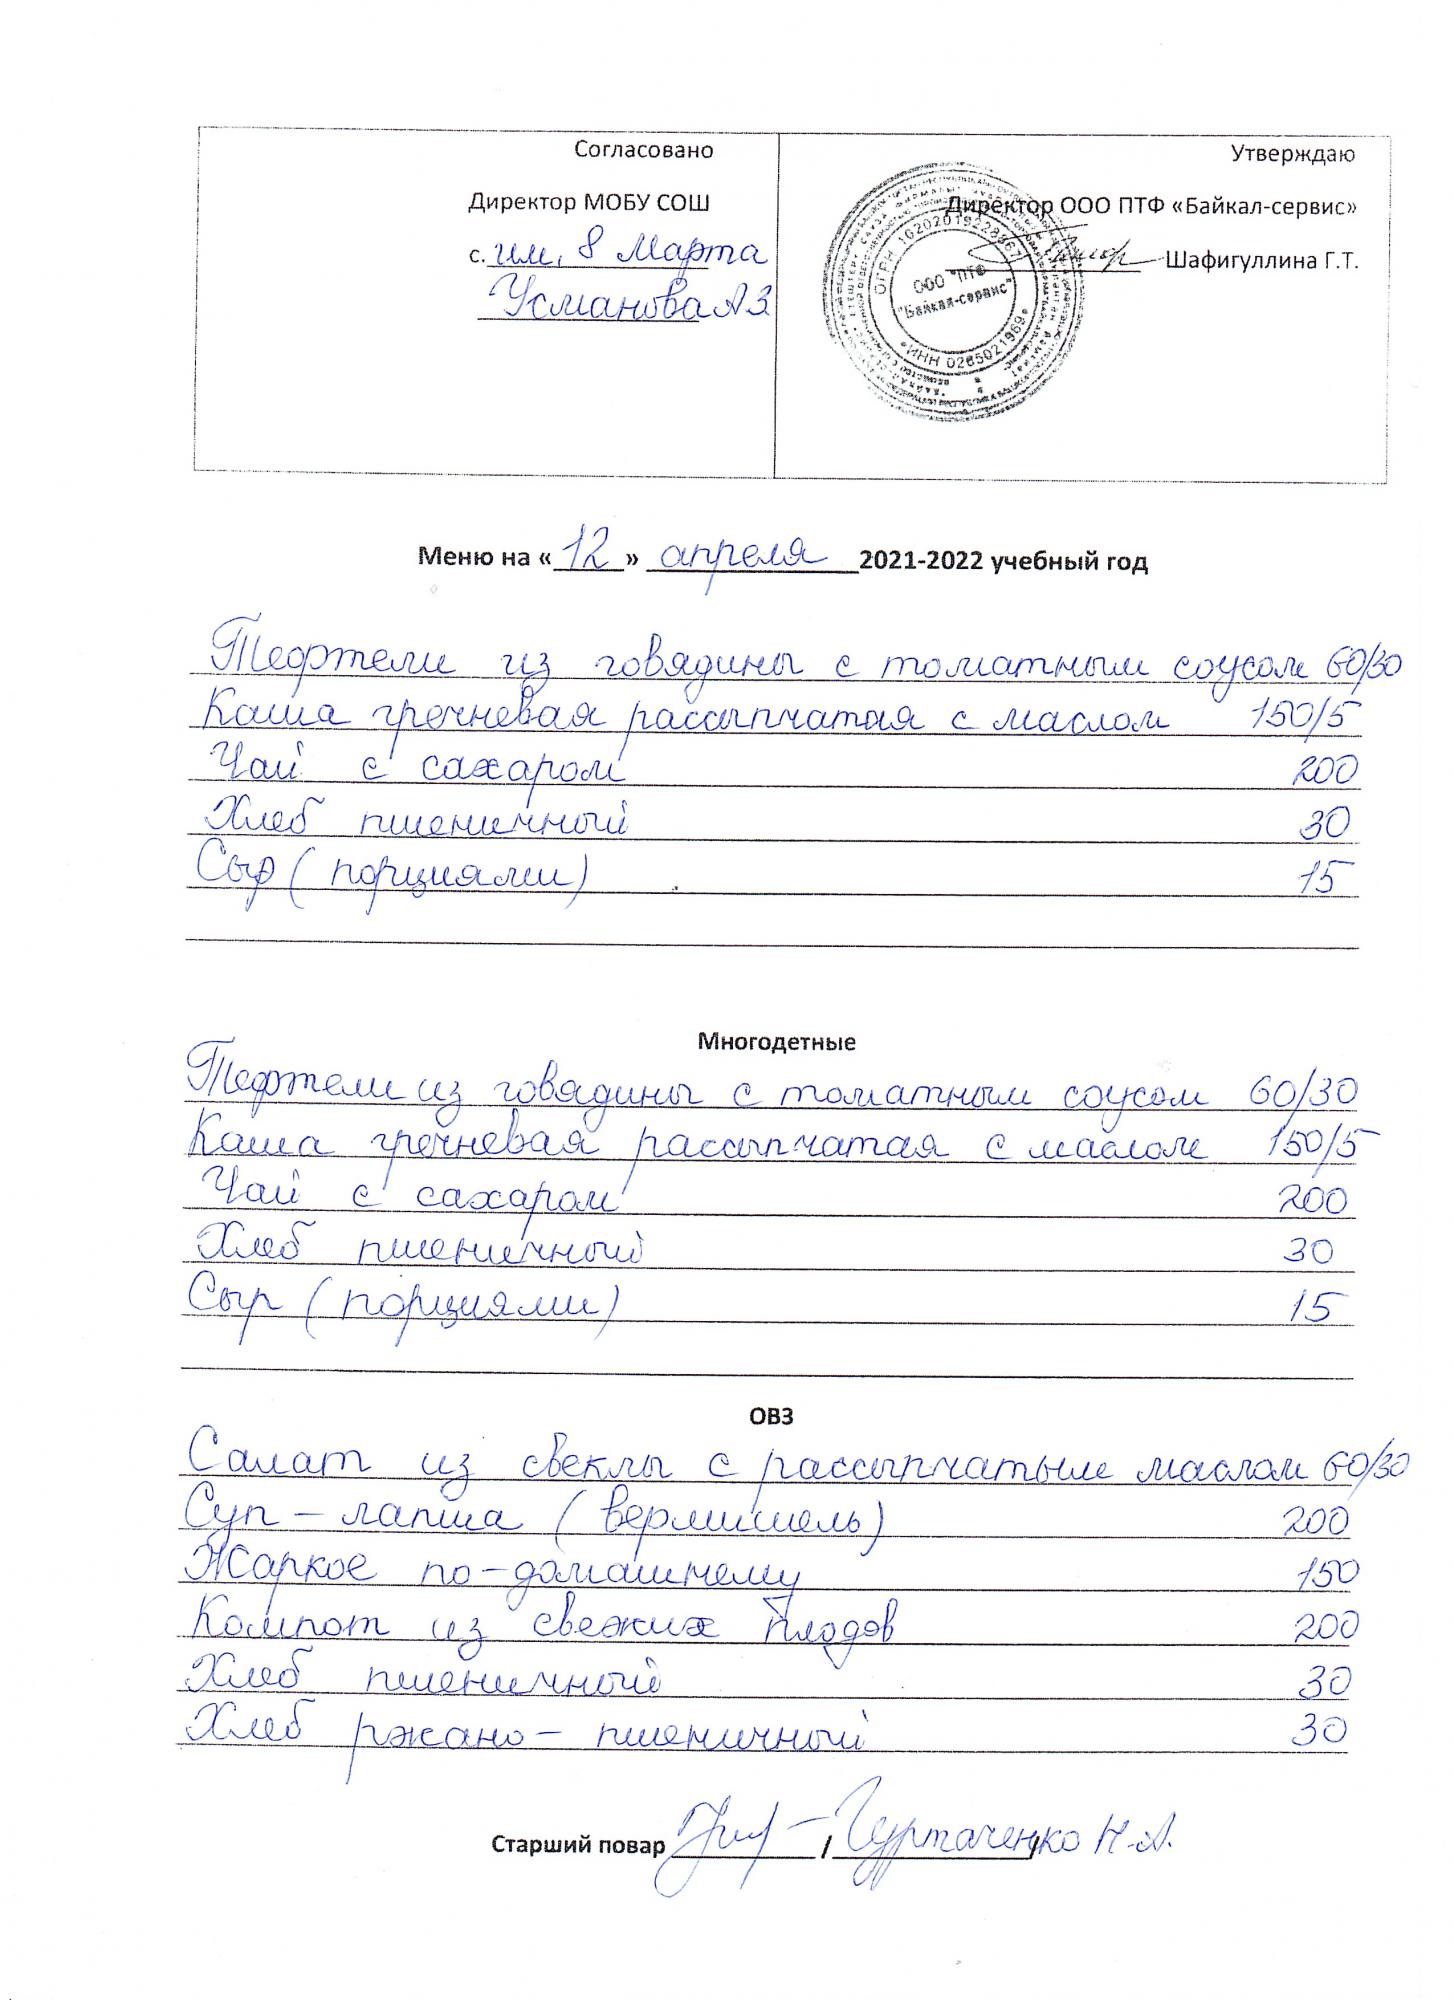 Согласовано
Директор МОБУ СОШ
с. им. 8 Марта
Усманова А З
Утверждаю
Директор ООО ПТФ «Байкал-сервис»
Шафигуллина Г.Т.
ОГРН 1020201922896
ООО "ПТФ
"Байкал-сервис"
ИНН 0265021969
Меню на « 12 » апреля 2021-2022 учебный год
Тефтели из говядины с томатным соусом 60/30
Каша гречневая рассыпчатая с маслом 150/5
Чай с сахаром 200
Хлеб пшеничный 30
Сыр ( порциями) 15
Многодетные
Тефтели из говядины с томатным соусом 60/30
Каша гречневая рассыпчатая с маслом 150/5
Чай с сахаром 200
Хлеб пшеничный 30
Сыр ( порциями) 15
ОВЗ
Салат из свеклы с рассыпчатым маслом 60/30
Суп – лапша ( вермишель) 200
Жаркое по-домашнему 150
Компот из свежих плодов 200
Хлеб пшеничный 30
Хлеб ржано – пшеничный 30
Старший повар / Гуртаченко Н.А. /